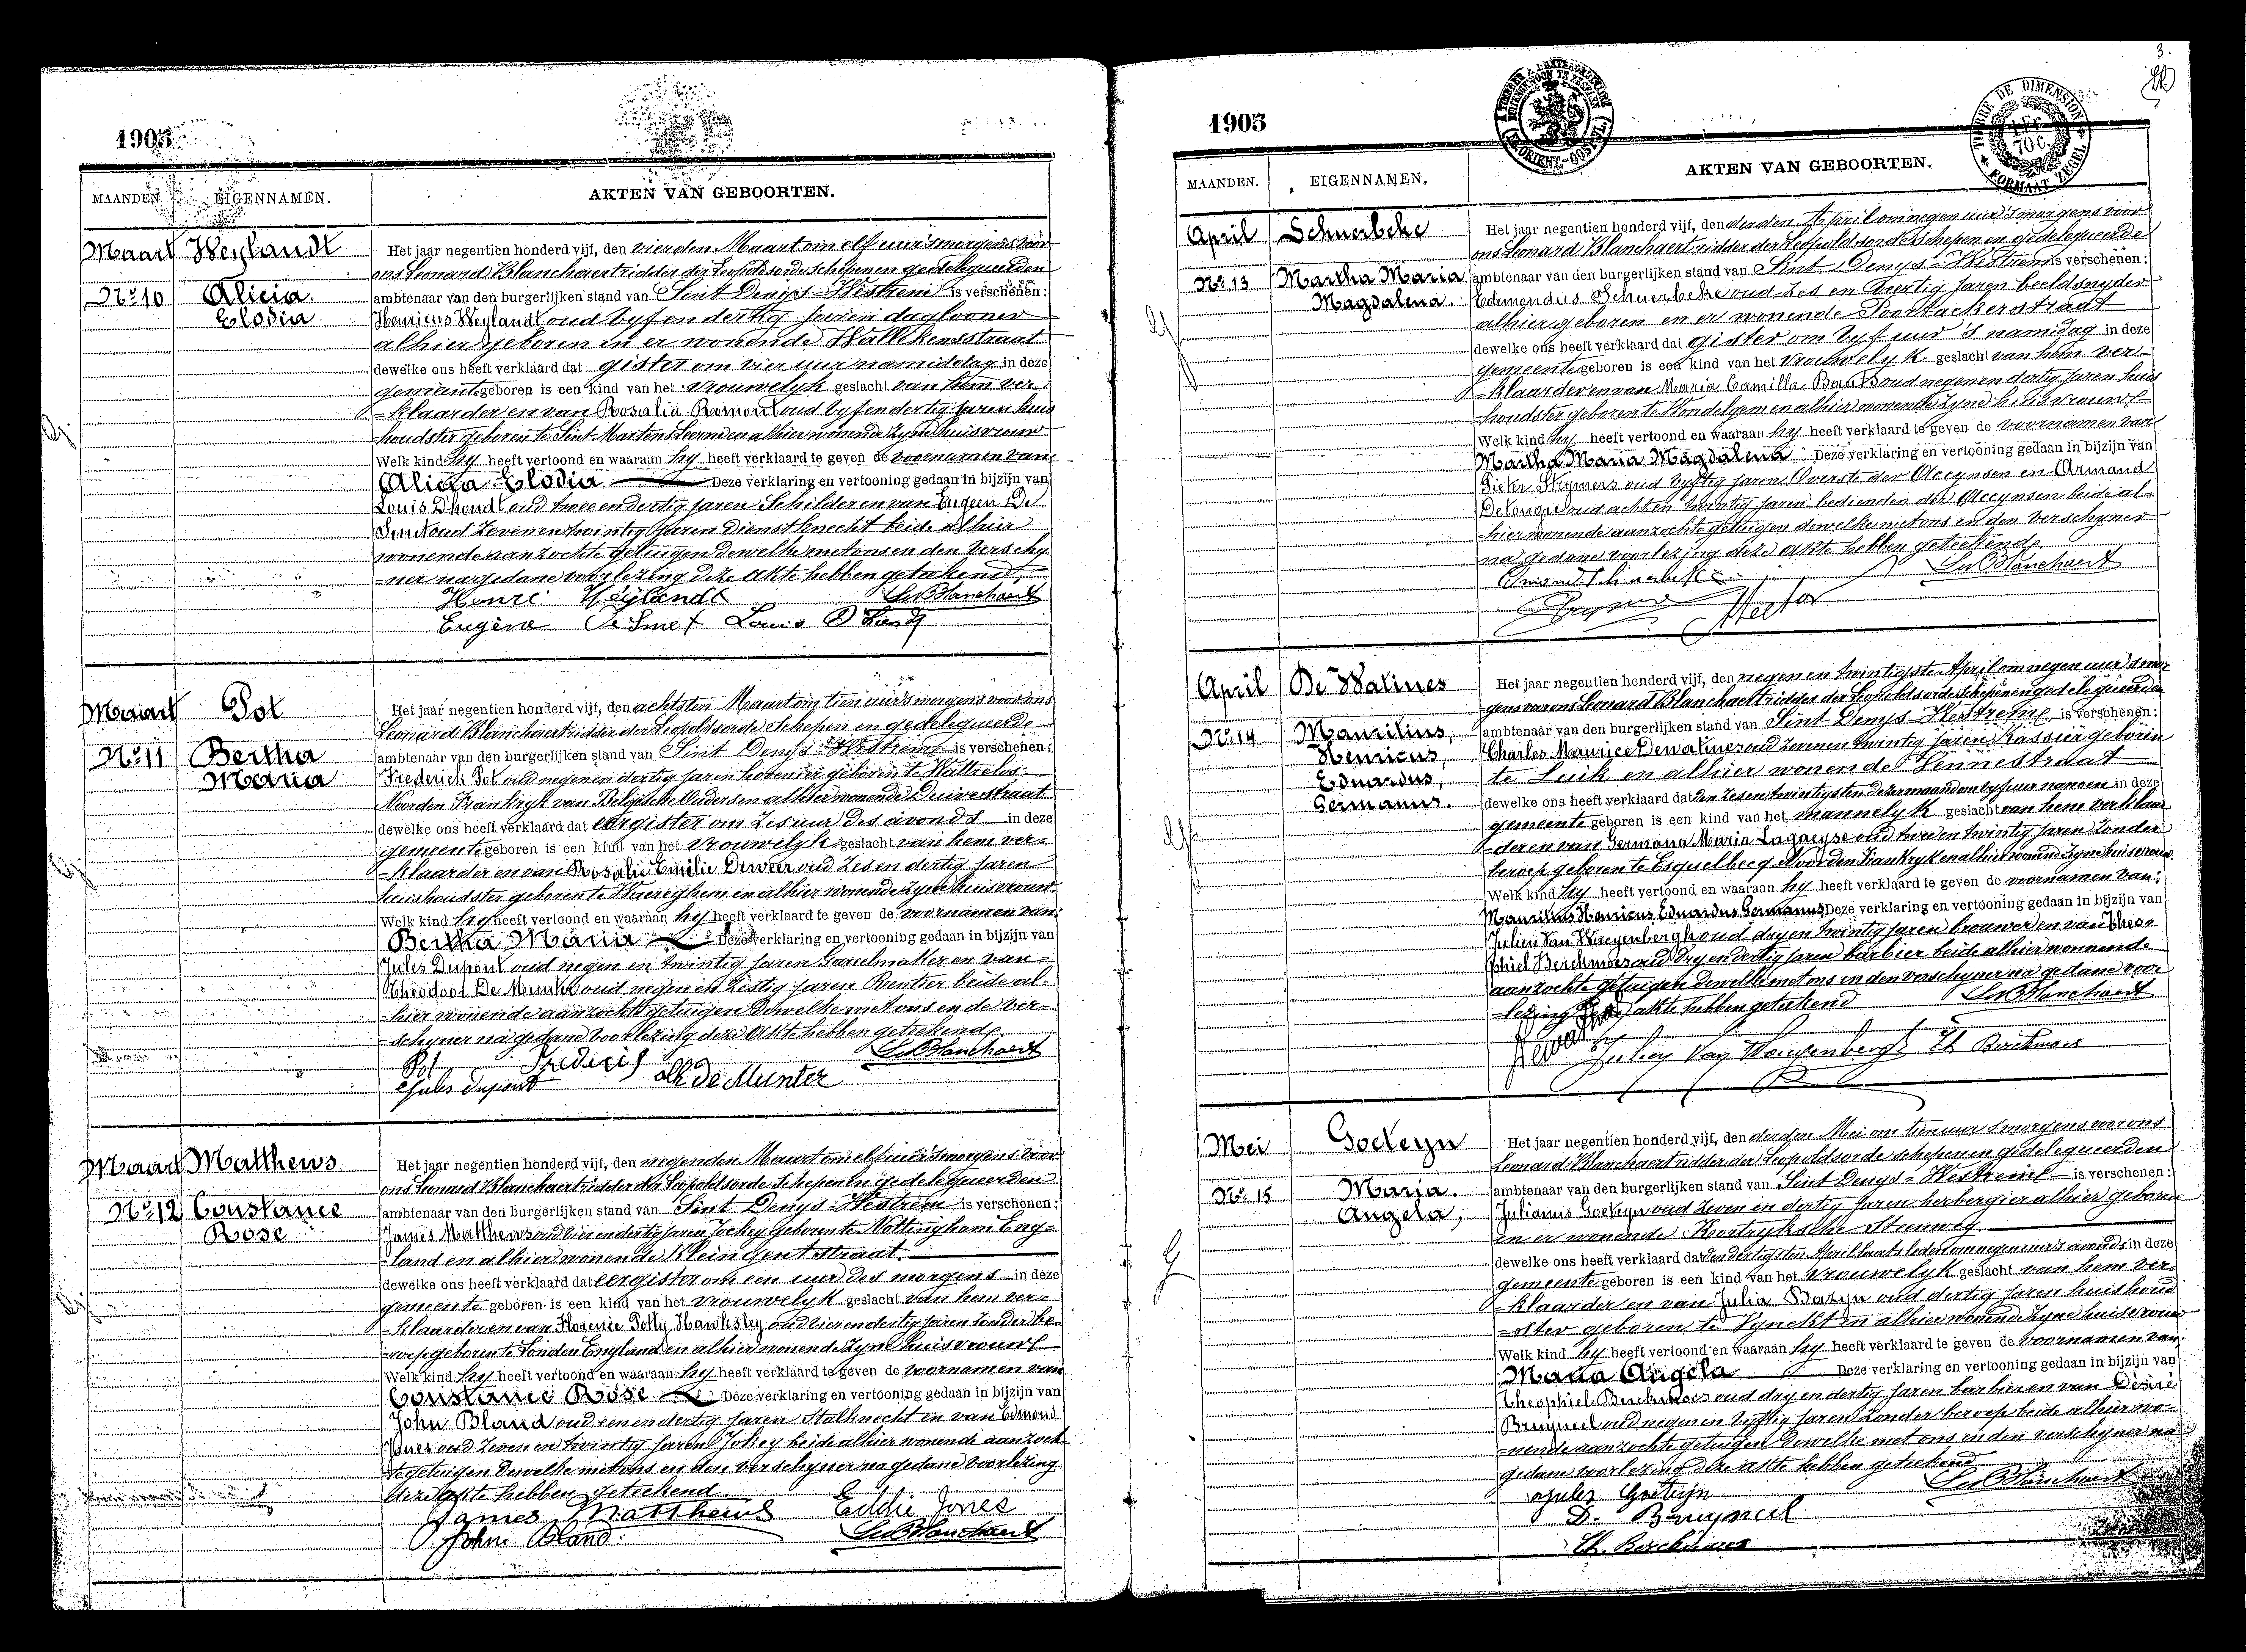 1905
MAANDEN. EIGENNAMEN. AKTEN VAN GEBOORTEN.
Maart Weylandt
No 10 Alicia
Elodia
Het jaar negentien honderd vijf, den vierden Maart om elf uur 's morgens voor
ons Leonard Blanchaert ridder der Leopoldsorde schepen en gedelegueerden
ambtenaar van den burgerlijken stand van Sint Denijs-Westrem is verschenen:
Henricus Weylandt oud vyf en dertig jaren daglooner
alhier geboren en er wonende Walkensstraat
dewelke ons heeft verklaard dat gister om vier uur namiddag in deze
gemeente geboren is een kind van het vrouwelyk geslacht van hem ver-
-klaarder en van Rosalia Romont oud vyf en dertig jaren huis
-houdster geboren te Sint Martens Leerne en alhier wonende zyne huisvrouw
Welk kind hy heeft vertoond en waaraan hy heeft verklaard te geven de voornamen van
Alicia Elodia Deze verklaring en vertooning gedaan in bijzijn van
Louis D'hondt oud twee en dertig jaren Schilder en van Eugeen De
Smet oud zeven en twintig jaren Dienstknecht beide alhier
wonende aanzochte getuigen dewelke met ons en den verschy
-ner na gedane voorlezing deze akte hebben geteekend.
Henri Weylandt LvBlanchaert
Eugène De Smet Louis D'hondt
Maart Pot
No 11 Bertha
Maria
Het jaar negentien honderd vijf, den achtsten Maart om tien uur 's morgens voor ons
Leonard Blanchaert ridder der Leopoldsorde Schepen en gedelegueerde
ambtenaar van den burgerlijken stand van Sint Denys-Westrem is verschenen:
Frederich Pot oud negen en dertig jaren hovenier geboren te Wattrelos
Noorden Frankryk van Belgische Ouders en alhier wonende Duivestraat
dewelke ons heeft verklaard dat eergister om zes uur des avonds in deze
gemeente geboren is een kind van het vrouwelyk geslacht van hem ver-
-klaarder en van Rosalie Emilie Deweer oud zes en dertig jaren
huishoudster geboren te Waereghem en alhier wonende zyne huisvrouw
Welk kind hy heeft vertoond en waaraan hy heeft verklaard te geven de voornamen van
Bertha Maria Deze verklaring en vertooning gedaan in bijzijn van
Jules Dupont oud negen en twintig jaren Gareelmaker en van
Theodoor De Munter oud negen en zestig jaren Rentier beide al-
-hier wonende aanzochte getuigen dewelke met ons en de ver-
-schyner na gedane voorlezing deze akte hebben geteekend
Pot Frederic LvBlanchaert
Jules Dupont Th De Munter
Maart Matthews
No 12 Constance
Rose
Het jaar negentien honderd vijf, den negenden Maart om elf uur 's morgens voor
ons Leonard Blanchaert ridder der Leopoldsorde Schepen en gedelegueerden
ambtenaar van den burgerlijken stand van Sint Denys-Westrem is verschenen:
James Matthews oud vier en dertig jaren Jockey geboren te Nottingham Eng-
-land en alhier wonende Klein Gentstraat.
dewelke ons heeft verklaard dat eergister om een uur des morgens in deze
gemeente geboren is een kind van het vrouwelyk geslacht van hem ver-
-klaarder en van Florence Polly Hawksley oud vier en dertig jaren zonder be-
-roep geboren te Londen Engeland en alhier wonende zyne huisvrouw
Welk kind hy heeft vertoond en waaraan hy heeft verklaard te geven de voornamen van
Constance Rose Deze verklaring en vertooning gedaan in bijzijn van
John Bland oud een en dertig jaren Stalknecht en van Edmond
Jones oud zeven en twintig jaren Jokey beide alhier wonende aanzoch-
te getuigen dewelke met ons en den verschyner na gedane voorlezing
deze akte hebben geteekend.
James Matthews Eddie Jones
John Bland. LvBlanchaert
3.
1905
TIMBRE DE DIMENSION
1 Fr. 70 C.
FORMAAT ZEGEL
MAANDEN. EIGENNAMEN. AKTEN VAN GEBOORTEN.
April Schuerbeke
No 13 Martha Maria
Magdalena.
Het jaar negentien honderd vijf, den derden April om negen uur 's morgens voor
ons Leonard Blanchaert ridder der Leopoldsorde schepen en gedelegueerde
ambtenaar van den burgerlijken stand van Sint Denys-Westrem is verschenen:
Edmondus Schuerbeke oud zes en veertig jaren beeldsnyder
alhier geboren en er wonende Poortackerstraat
dewelke ons heeft verklaard dat gister om vyf uur 's namidag in deze
gemeente geboren is een kind van het vrouwelyk geslacht van hem ver-
-klaarder en van Maria Camilla Baats oud negen en dertig jaren huis
-houdster geboren te Wondelgem en alhier wonende zyne huisvrouw
Welk kind hy heeft vertoond en waaraan hy heeft verklaard te geven de voornamen van
Martha Maria Magdalena Deze verklaring en vertooning gedaan in bijzijn van
Pieter Strymers oud vyftig jaren Overste der Accynsen en Armand
Delongie oud acht en twintig jaren bedienden der Accynsen beide al-
-hier wonende aanzochte getuigen dewelke met ons en den verschyner
na gedane voorlezing deze akte hebben geteekend
LvBlanchaert
April De Walines
No 14 Maurilius,
Henricus,
Eduardus,
Germanus.
Het jaar negentien honderd vijf, den negen en twintigsten April om negen uur 's mor
gens voor ons Leonard Blanchaert ridder der Leopoldsorde schepen en gedelegueerden
ambtenaar van den burgerlijken stand van Sint Denys-Westrem is verschenen:
Charles Maurice Dewalines oud zeven en twintig jaren Kassier geboren
te Luik en alhier wonende Lennestraat
dewelke ons heeft verklaard dat den zes en twintigsten dezer maand om vyf uur nanoen in deze
gemeente geboren is een kind van het mannelyk geslacht van hem verklaar
-der en van Germana Maria Lagaeyse oud twee en twintig jaren zonder
beroep geboren te Esquelbecq Noorden Frankryk en alhier wonende zyne huisvrouw
Welk kind hy heeft vertoond en waaraan hy heeft verklaard te geven de voornamen van:
Maurilius Henricus Eduardus Germanus Deze verklaring en vertooning gedaan in bijzijn van
Julien Van Waeyenbergh oud dry en twintig jaren brouwer en van Theo-
phiel Berckmoes oud dry en dertig jaren barbier beide alhier wonende
aanzochte getuigen dewelke met ons en den verschyner na gedane voor
-lezing deze akte hebben geteekend LvBlanchaert
Julien Van Waeyenbergh Th Berckmoes
Mei Goeteyn
No 15 Maria.
Angela,
Het jaar negentien honderd vijf, den derden Mei om tien uur 's morgens voor ons
Leonard Blanchaert ridder der Leopoldsorde schepen en gedelegueerden
ambtenaar van den burgerlijken stand van Sint Denys-Westrem is verschenen:
Julianus Goeteyn oud zeven en dertig jaren herbergier alhier geboren
en er wonende Kortryksche Steenweg
dewelke ons heeft verklaard dat den dertigsten April laatstleden om negen uur 's avonds in deze
gemeente geboren is een kind van het vrouwelyk geslacht van hem ver-
-klaarder en van Julia Bazyn oud dertig jaren huishoud
-ster geboren te Vynckt en alhier wonende zyne huisvrouw
Welk kind hy heeft vertoond en waaraan hy heeft verklaard te geven de voornamen van
Maria Angela Deze verklaring en vertooning gedaan in bijzijn van
Theophiel Berckmoes oud dry en dertig jaren barbier en van Désiré
Bruyneel oud negen en vyftig jaren zonder beroep beide alhier wo-
-nende aanzochte getuigen dewelke met ons en den verschyner na
gedane voorlezing deze akte hebben geteekend
Jules Goeteyn LvBlanchaert
D. Bruyneel
Th. Berckmoes